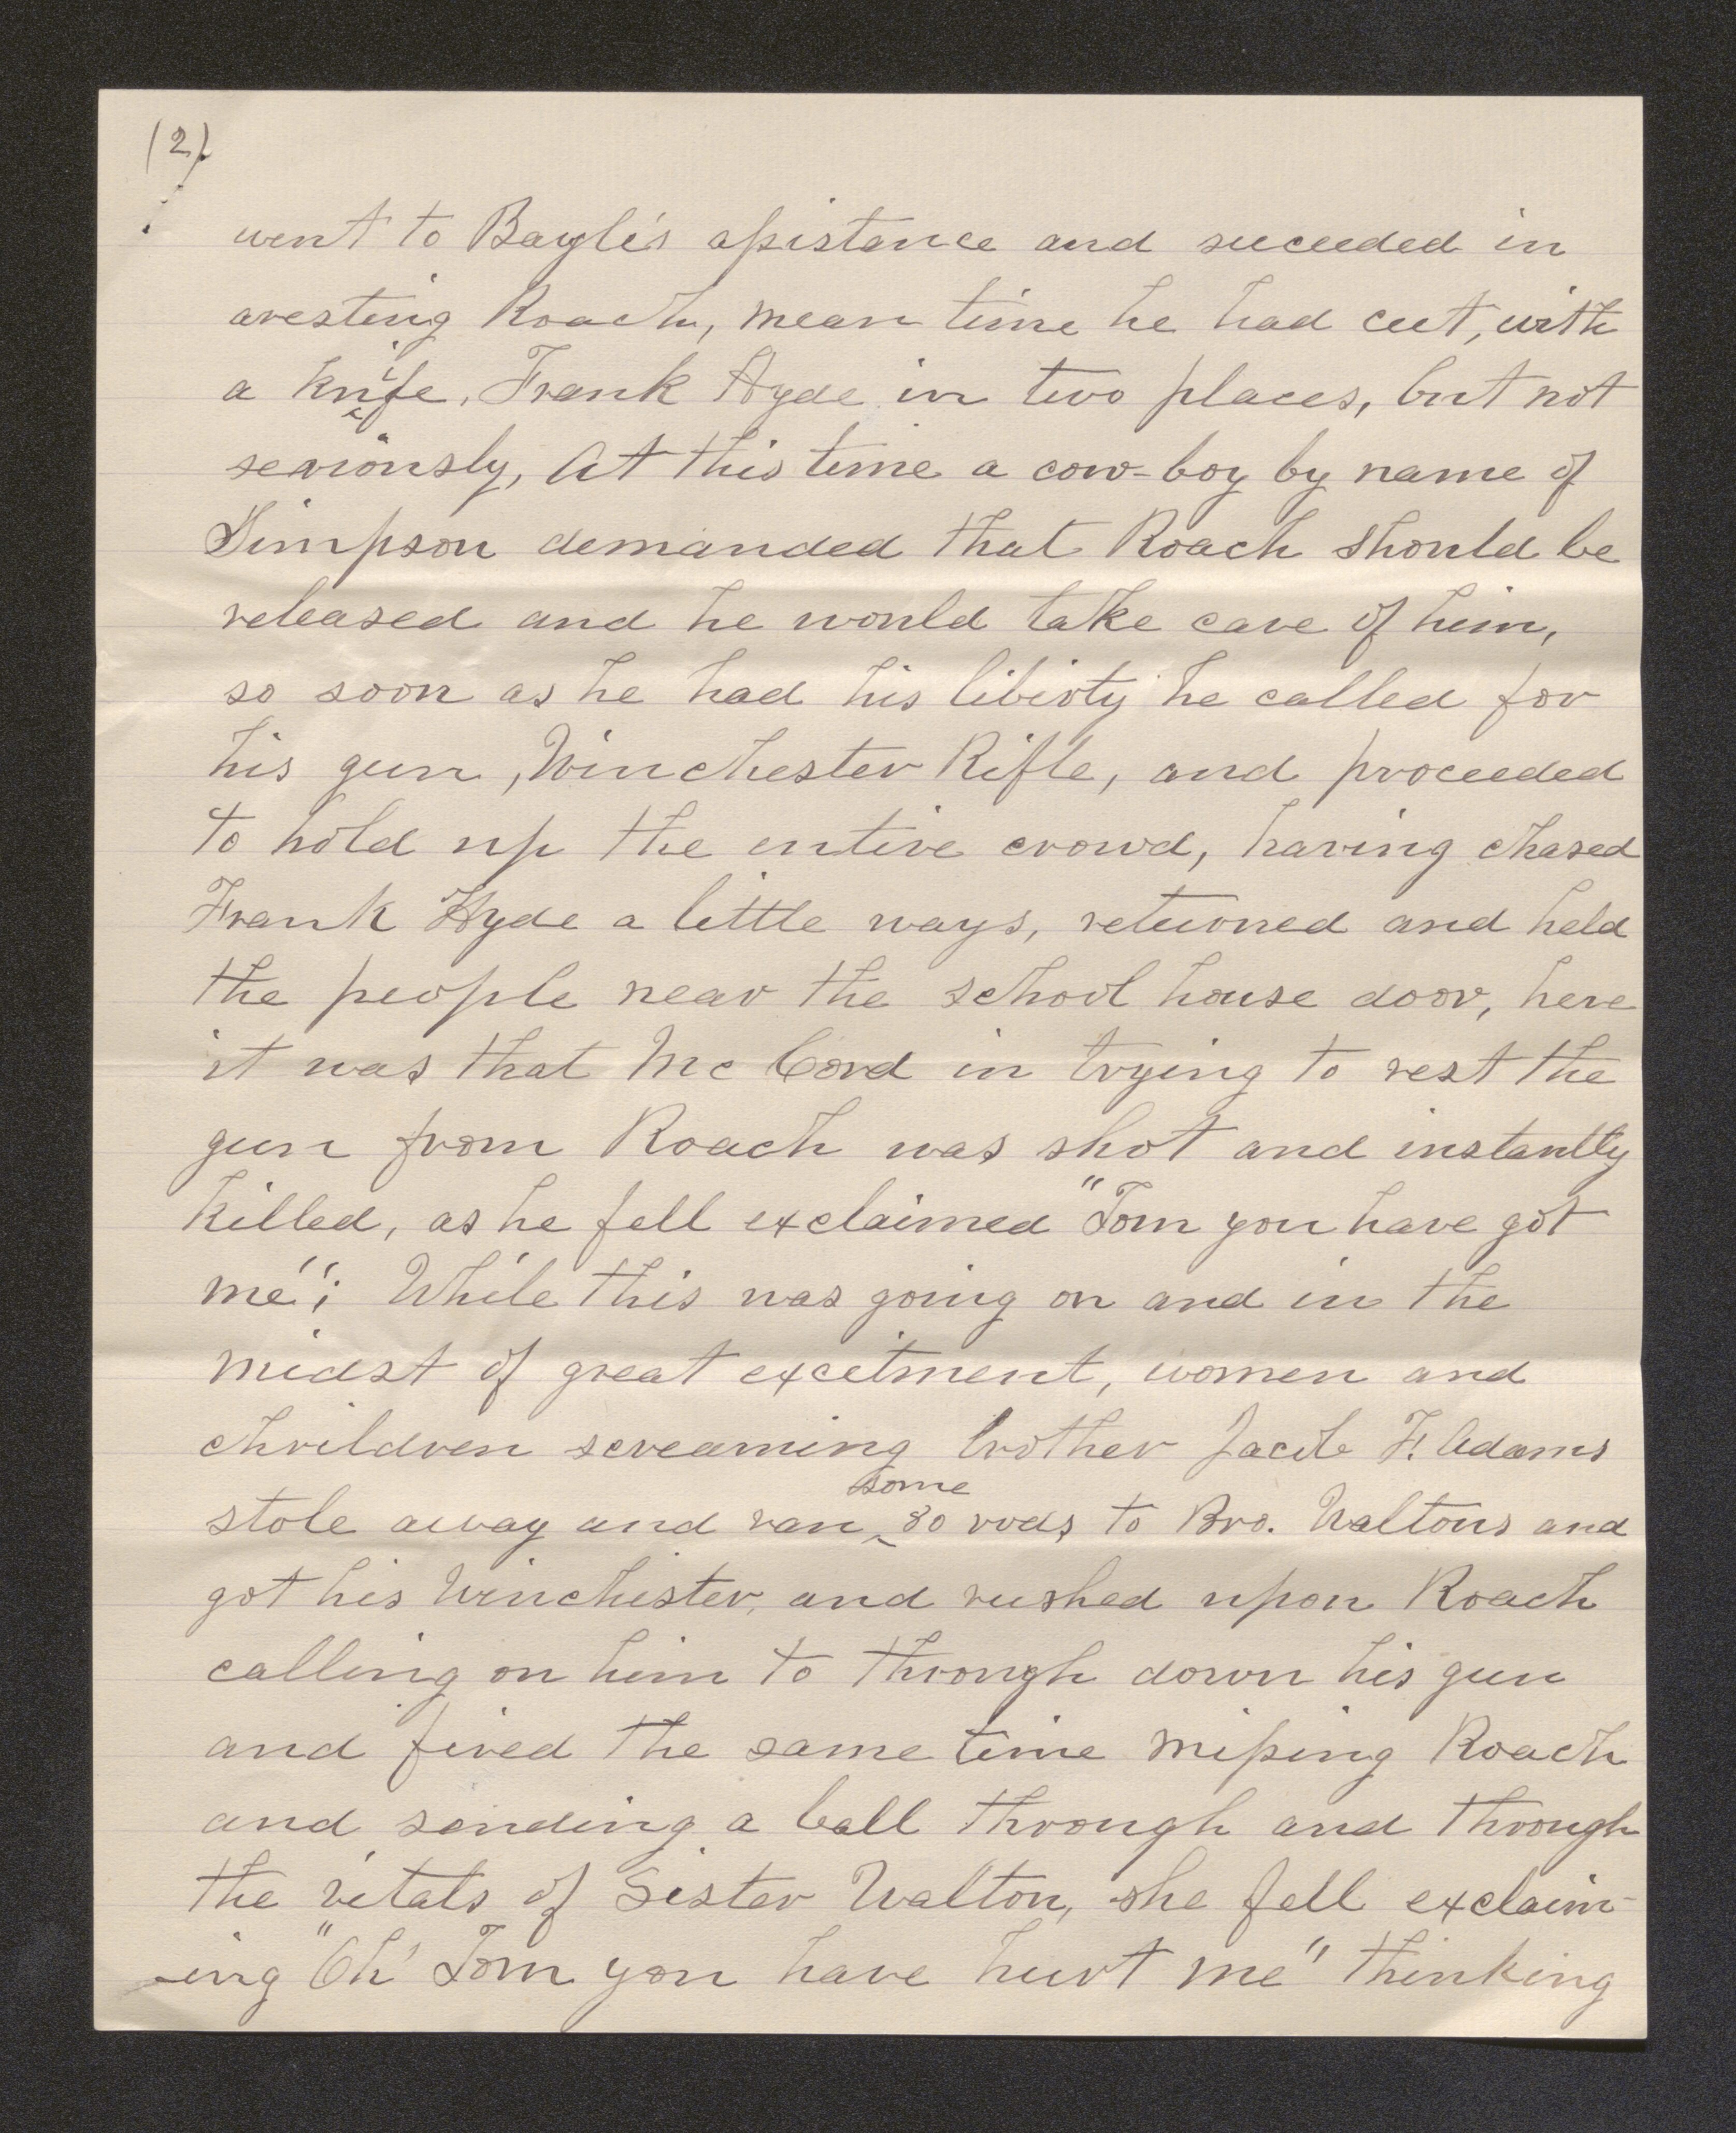 (2)
went to Bayle's assistance and succeded in
aresting Roach, mean time he had cut, with
a knife, Frank Hyde in two places, but not
seriously, At this time a cow-boy by name of
Simpson demanded that Roach should be
released and he would take care of him,
so soon as he had his liberty he called for
his gun, Winchester Rifle, and proceeded
to hold up the entire crowd, having chased
Frank Hyde a little ways, returned and held
the people near the school house door, here
it was that Mc Cord in trying to rest the
gun from Roach was shot and instantly
killed, as he fell exclaimed "Tom you have got
me"; While this was going on and in the
midst of great excitment, women and
chrildren screaming brother F. Adams
stole away and ran some 80 rods to Bro. Waltons and
got his Winchister, and rushed upon Roach
calling on him to through down his gun
and fired the same time missing Roach
and sending a ball through and through
the vitals of Sister Walton, she fell exclaim-
-ing "Oh' Tom you have hurt me" thinking